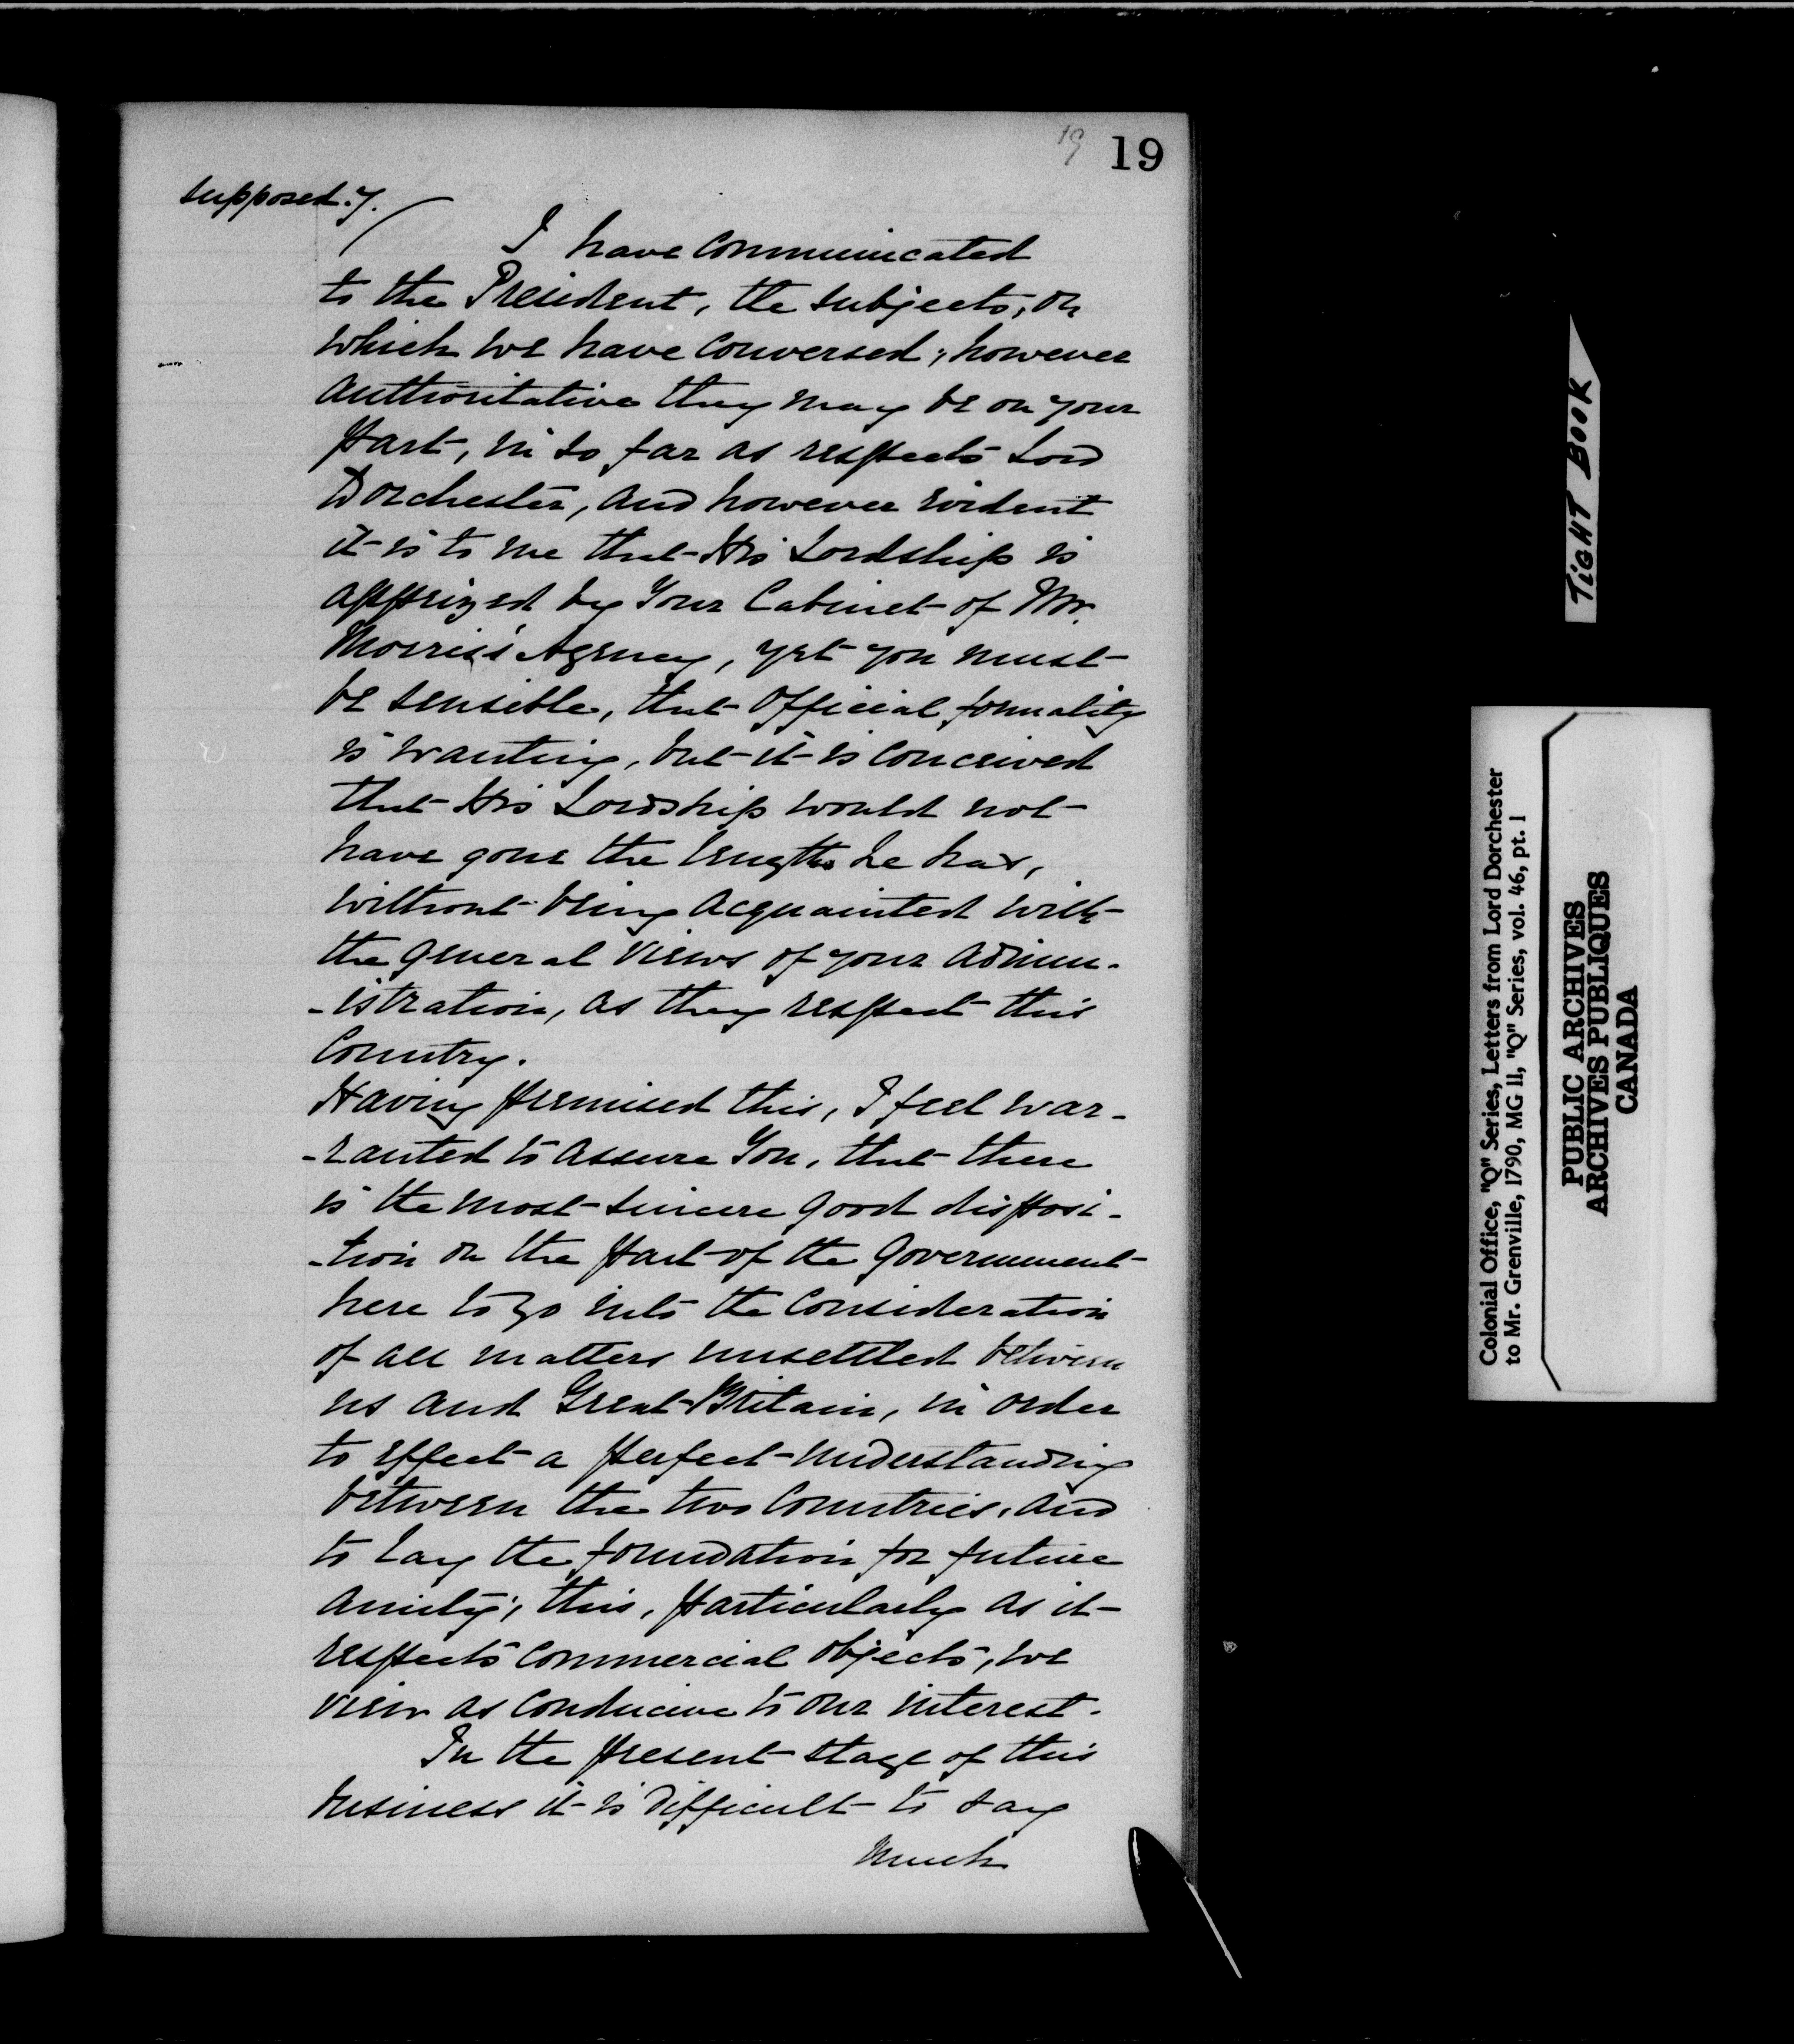 19 19
supposed.7.
I have communicated
to the President, the subjects, on
which we have conversed; however
authoritative they may be on your
part, in so far as respects Lord
Dorchester, and however evident
it is to me that His Lordship is
apprized by Your Cabinet of Mr.
Morris's Agency, yet you must
be sensible, that official formality
is wanting, but it is conceived
that His Lordship would not
have gone the lengths he has,
without being acquainted with
the general views of your admin-
-istration, as they respect this
Country.
Having premised this, I feel war-
-ranted to assure You, that there
is the most sincere good disposi-
-tion on the part of the Government
here to go into the consideration
of all matters unsettled between
us and Great Britain, in order
to effect a perfect understanding
between the two Countries, and
to lay the foundation for future
amity; this, particularly as it
respects commercial objects, we
view as conducive to our interest.
In the present stage of this
business it is difficult to say
much
TIGHT BOOK
Colonial Office, "Q" Series, Letters from Lord Dorchester
to Mr. Grenville, 1790, MG 11, "Q" Series, vol. 46, pt. 1
PUBLIC ARCHIVES
ARCHIVES PUBLIQUES
CANADA